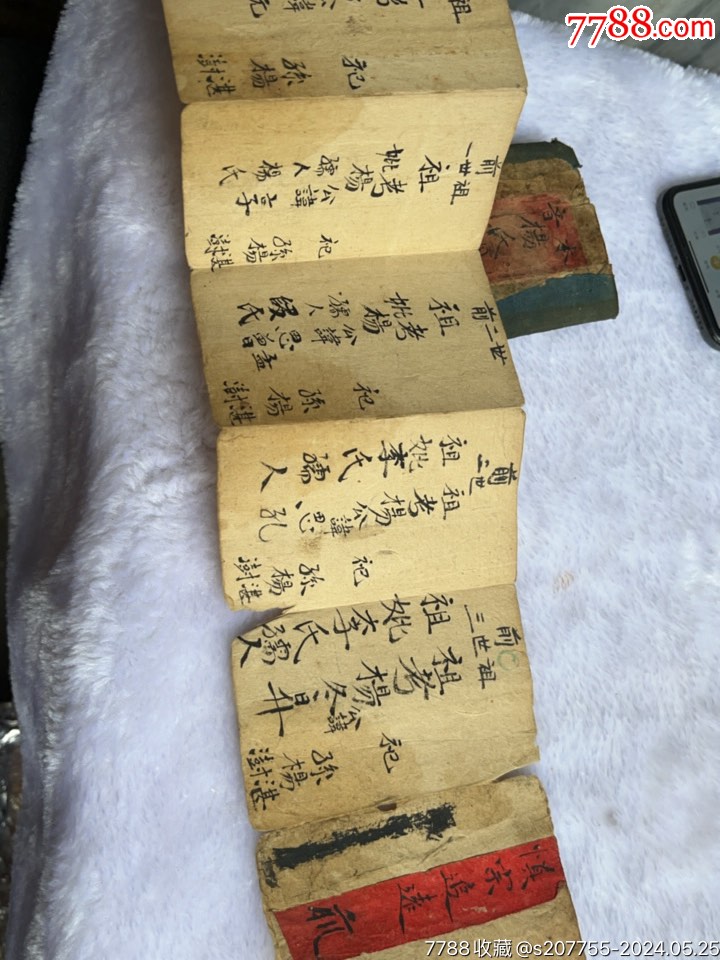 7788.com
祖
公諱元
祀
孫楊湛澍
前一世祖
祖考楊公諱
妣孺人楊氏
祀
孫楊湛澍
前二世
祖考楊公諱思
妣孺人氏
祀
孫楊湛澍
前世
祖考楊公諱思孔
祖妣李氏孺人
祀
孫楊湛澍
前三世祖
祖考楊公諱冬昇
祖妣李氏孺人
祀
孫楊湛澍
慎宗追遠
楊
7788收藏@s207755-2024.05.25